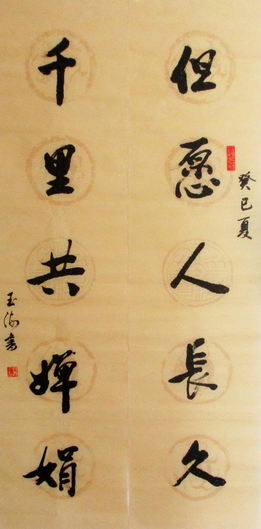 癸巳夏
但愿人長久
千里共嬋娟
玉海書